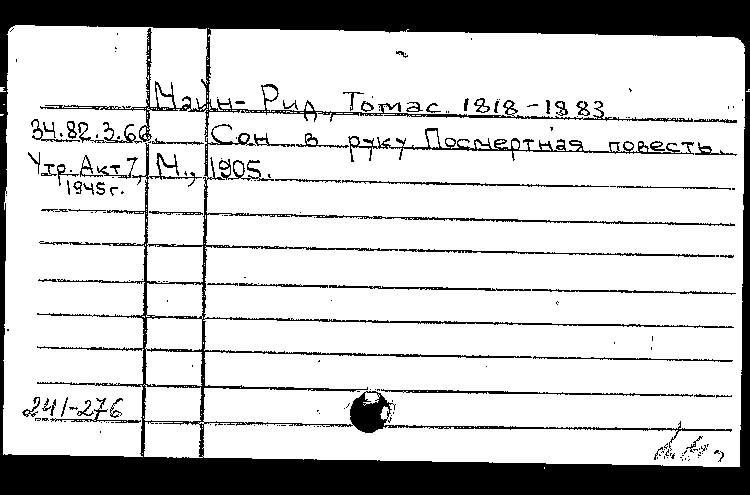 Майн-Рид, Томас 1818-1883
34.82.3.66. Сон в руку. Посмертная повесть.
Утр. Акт 7, М., 1905.
1945 г.
241-276